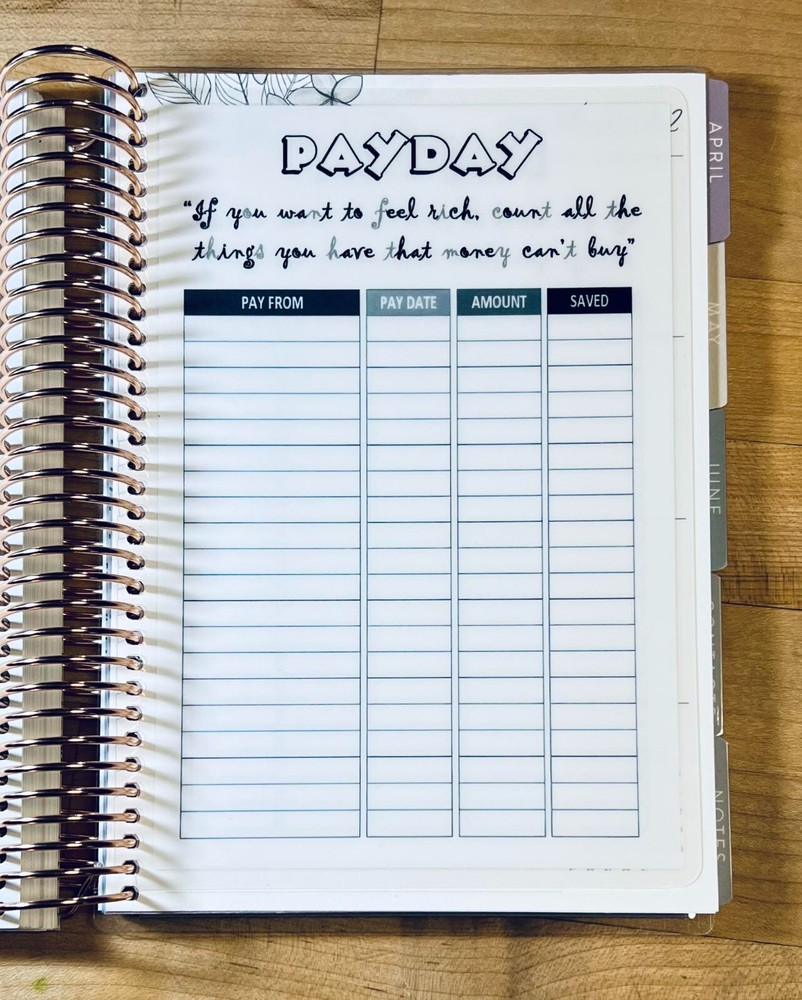 PAYDAY
“If you want to feel rich, count all the
things you have that money can't buy”
PAY FROM PAY DATE AMOUNT SAVED
APRIL
MAY
JUNE
NOTES